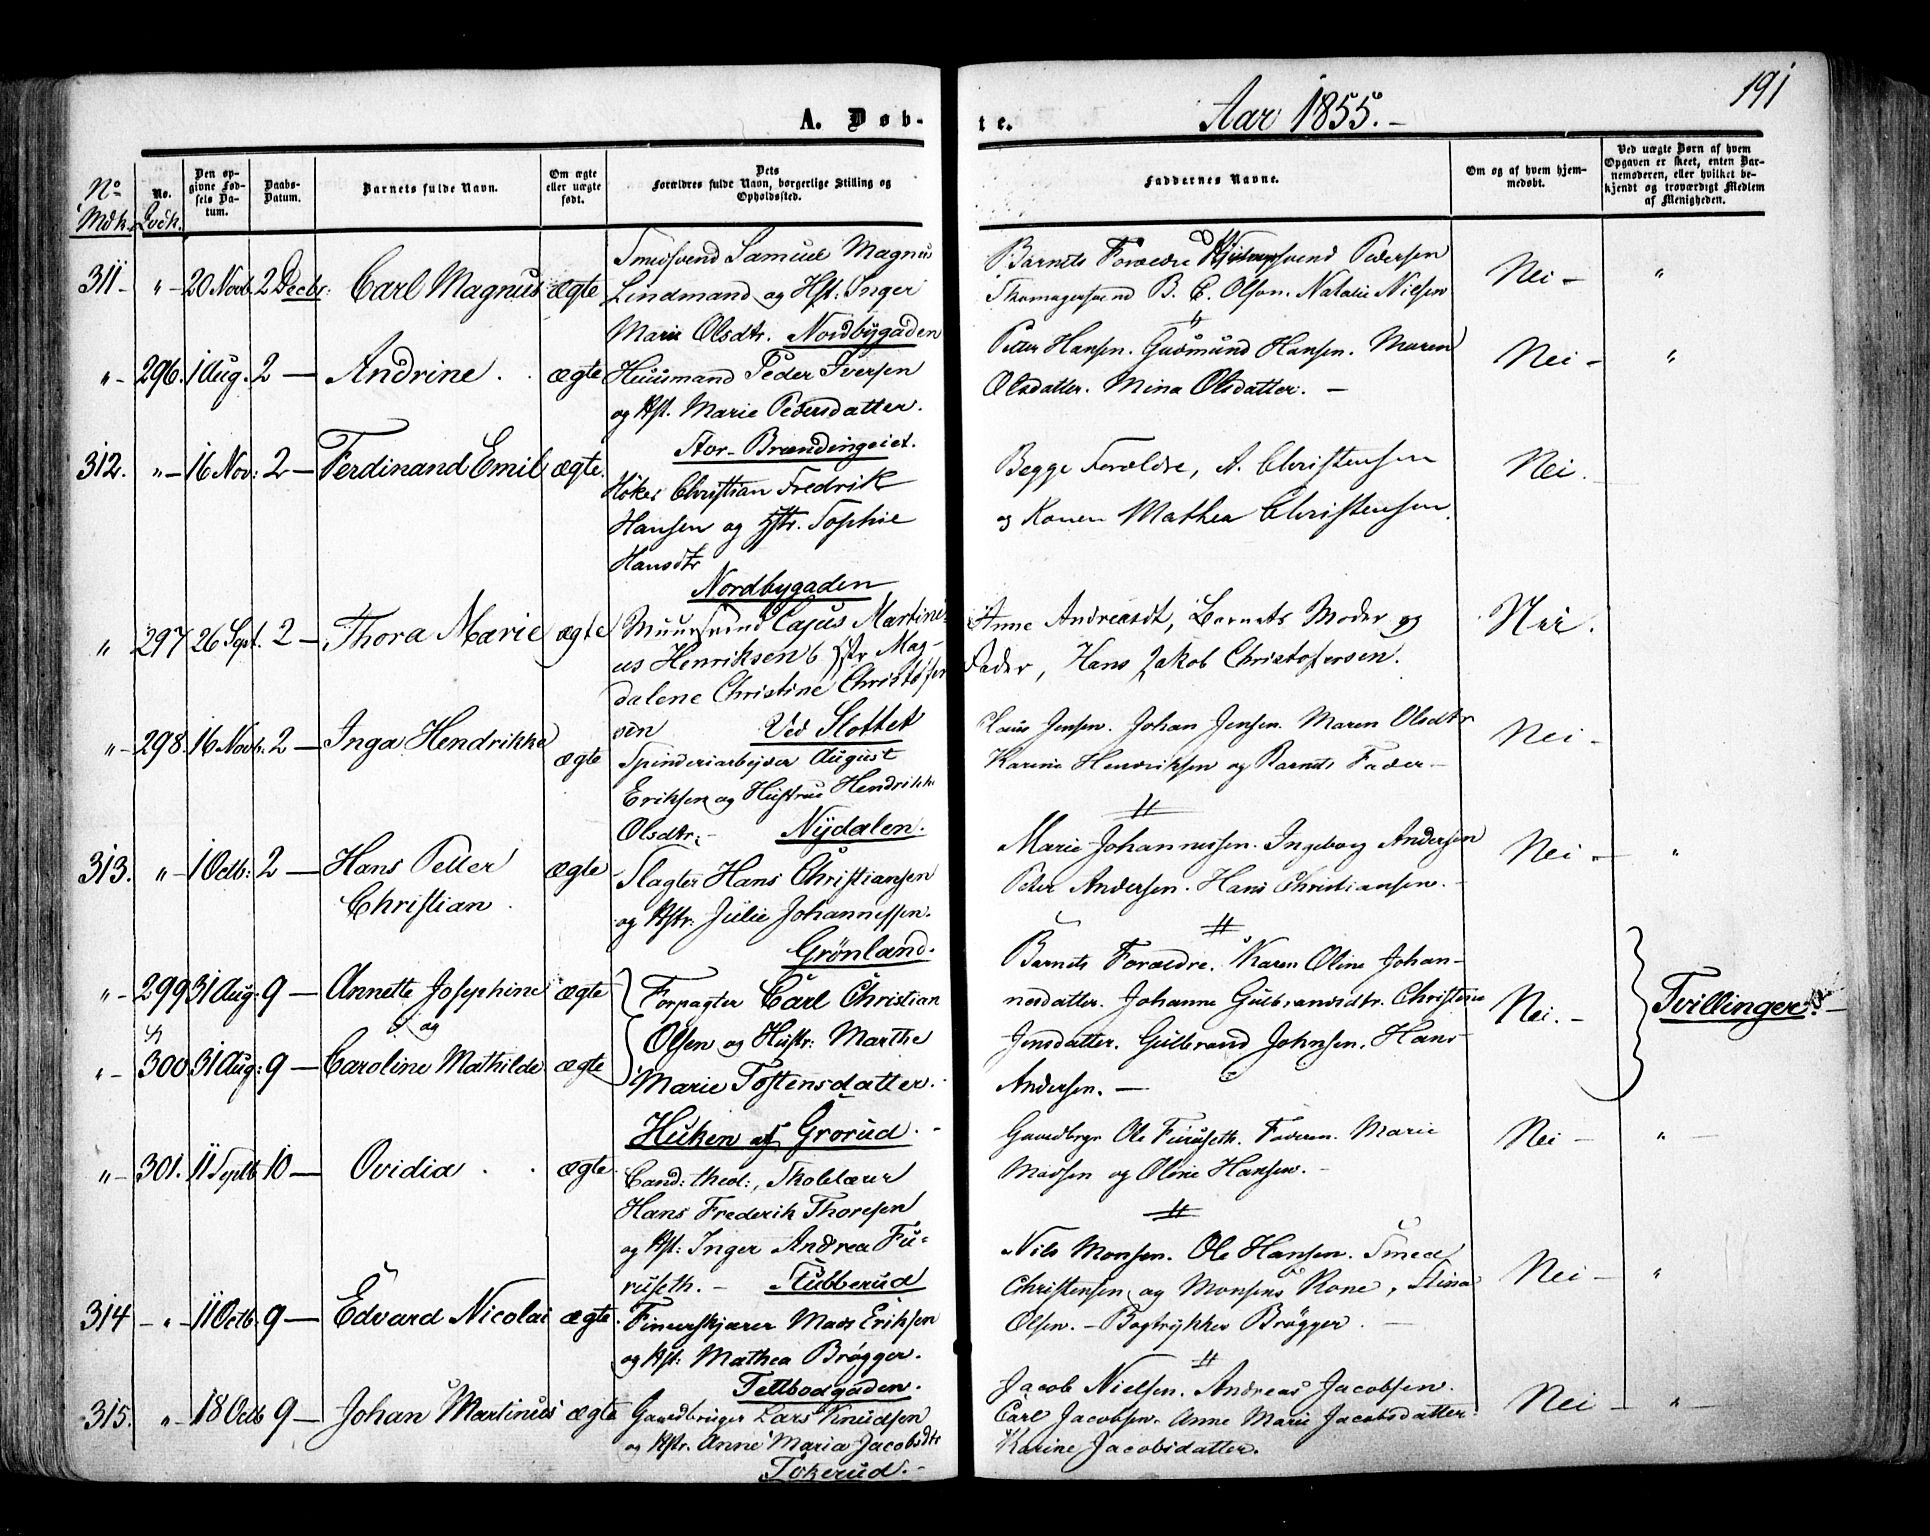 191
A. Døb-
te.
Aar 1855.-
No
Mdk.
No.
Qvdk.
Den op-
givne Fød-
sels Da-
tum.
Daabs-
Datum.
Barnets fulde Navn.
Om ægte
eller uægte
født.
Dets
Forældres fulde Navn, borgerlige Stilling og
Opholdssted.
Faddernes Navne.
Om og af hvem hjem-
medøbt.
Ved uægte Børn af hvem
Opgaven er skeet, enten Bar-
nemoderen, eller hvilket be-
kjendt og troværdigt Medlem
af Menigheden.
311- "- 20 Novb. 2 Decbr: Carl Magnus ægte
Smedsvend Samuel Magnus
Lindmand og Hst: Inger
Marie Olsdtr. Nordbygaden
Barnets Forældre Pedersen
B. C. Olson. Natalie Nielsen
Nei - "
"- 296. 1 Aug. 2 - Andrine. ægte
Huusmand Peder Iversen
og Hst. Marie Pedersdatter.
Stor-Brændingeiet.
Petter Hansen. Gudmund Hansen. Maren
Olsdatter. Mina Olsdatter. -
Nei - "
312. "- 16 Nov: 2 - Ferdinand Emil ægte.
Høker Christian Fredrik
Hansen og Hstr. Sophie
Hansdtr
Nordbygaden
Begge Forældre, A. Christensen
og Konen Mathea Christensen.
Nei.
" 297 26 Sept. 2 - Thora Marie ægte
Muursvend Cajus Martini-
us Henriksen & Hstr Mag-
dalene Christine Christofer
sen Ved Slottet
Anne Andreasdt, Barnets Moder og
Fader, Hans Jakob Christofersen.
Nei.
"- 298. 16 Novb. 2 - Inga Hendrikke ægte
Spinderiarbejder August
Eriksen og Hustrue Hendrikke
Olsdtr:- Nydalen.
Claus Jensen. Johan Jensen. Maren Olsdtr
Karine Henriksen og Barnets Fader -
Nei -
313. "- 1 Octb: 2 - Hans Petter
Christian. ægte
Slagter Hans Christiansen
og Hstr: Julie Johannessen.
Grønland.
Marie Johannessen. Ingeborg Andersen
Peter Andersen. Hans Christiansen. -
Nei - "
"- 299 31 Aug: 9 - Annette Josephine ægte
og
"- 300 31 Aug: 9 - Caroline Mathilde ægte
Forpagter Carl Christian
Olsen og Hustr: Marthe
Marie Tostensdatter.
Huken af Grorud.-
Barnets Forældre. Karen Oline Johan-
nesdatter. Johanne Gulbrandsdtr. Christine
Jensdatter. Gulbrand Johnsen. Hans
Andersen. -
Nei. - Tvillinger. -
"- 301. 11 Septb 10 - Ovidia.. ægte
Cand: theol:, Skolelærer
Hans Frederik Thoresen
og Hst: Inger Andrea Fu-
ruseth. - Stubberud
Gaardbrgr Ole Furuseth. Faderen. Marie
Madsen og Oline Hansen. -
Nei - "-
314 - "- 11 Octb. 9 - Edvard Nicolai ægte.
Finerskjærer Mads Eriksen
og Hst: Mathea Brøgger.
Teltbodgaden.
Nils Monsen. Ole Hansen. Smed
Christensen og Monsens Kone, Stina
Olsen. - Bogtrykker Brøgger. -
Nei - "
315. "- 18 Octb 9 - Johan Martinus ægte
Gaardbruger Lars Knudsen
og Hstr. Anne Maria Jacobsdtr
Tokerud. -
Jacob Nielsen. Andreas Jacobsen.
Carl Jacobsen. Anne Marie Jacobsdatter.
Karine Jacobsdatter.
Nei - "-